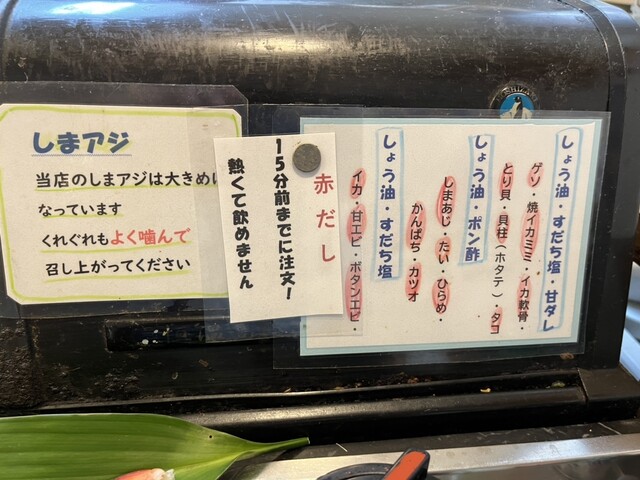 しまアジ
当店のしまアジは大きめに
なっています
くれぐれもよく噛んで
召し上がってください
赤だし
15分前までに注文!
熱くて飲めません
しょう油・すだち塩・甘ダレ
ゲソ・焼イカミミ・イカ軟骨・
とり貝・貝柱(ホタテ)・タコ
しょう油・ポン酢
しまあじ・たい・ひらめ・
かんぱち・カツオ
しょう油・すだち塩
イカ・甘エビ・ボタンエビ・